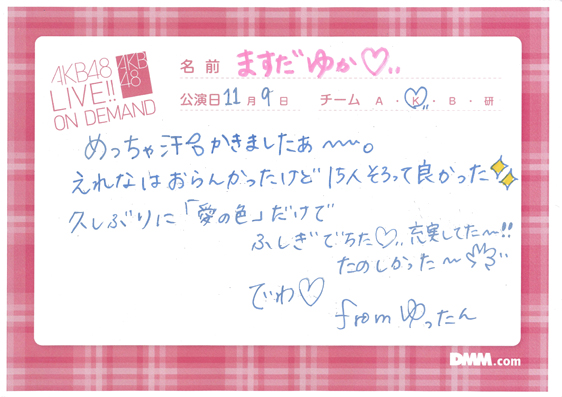 AKB48
LIVE!!
ON DEMAND
AKB
48
名前 ますだゆか♡..
公演日 11月 9日 チーム A・K・B・研
めっちゃ汗かきましたぁ〜〜。
えれなはおらんかったけど 15人そろって良かった✨
久しぶりに「愛の色」だけで
ふしぎでちた♡.. 充実してた〜!!
たのしかった〜
でわ♡
fromゆったん
DMM.com